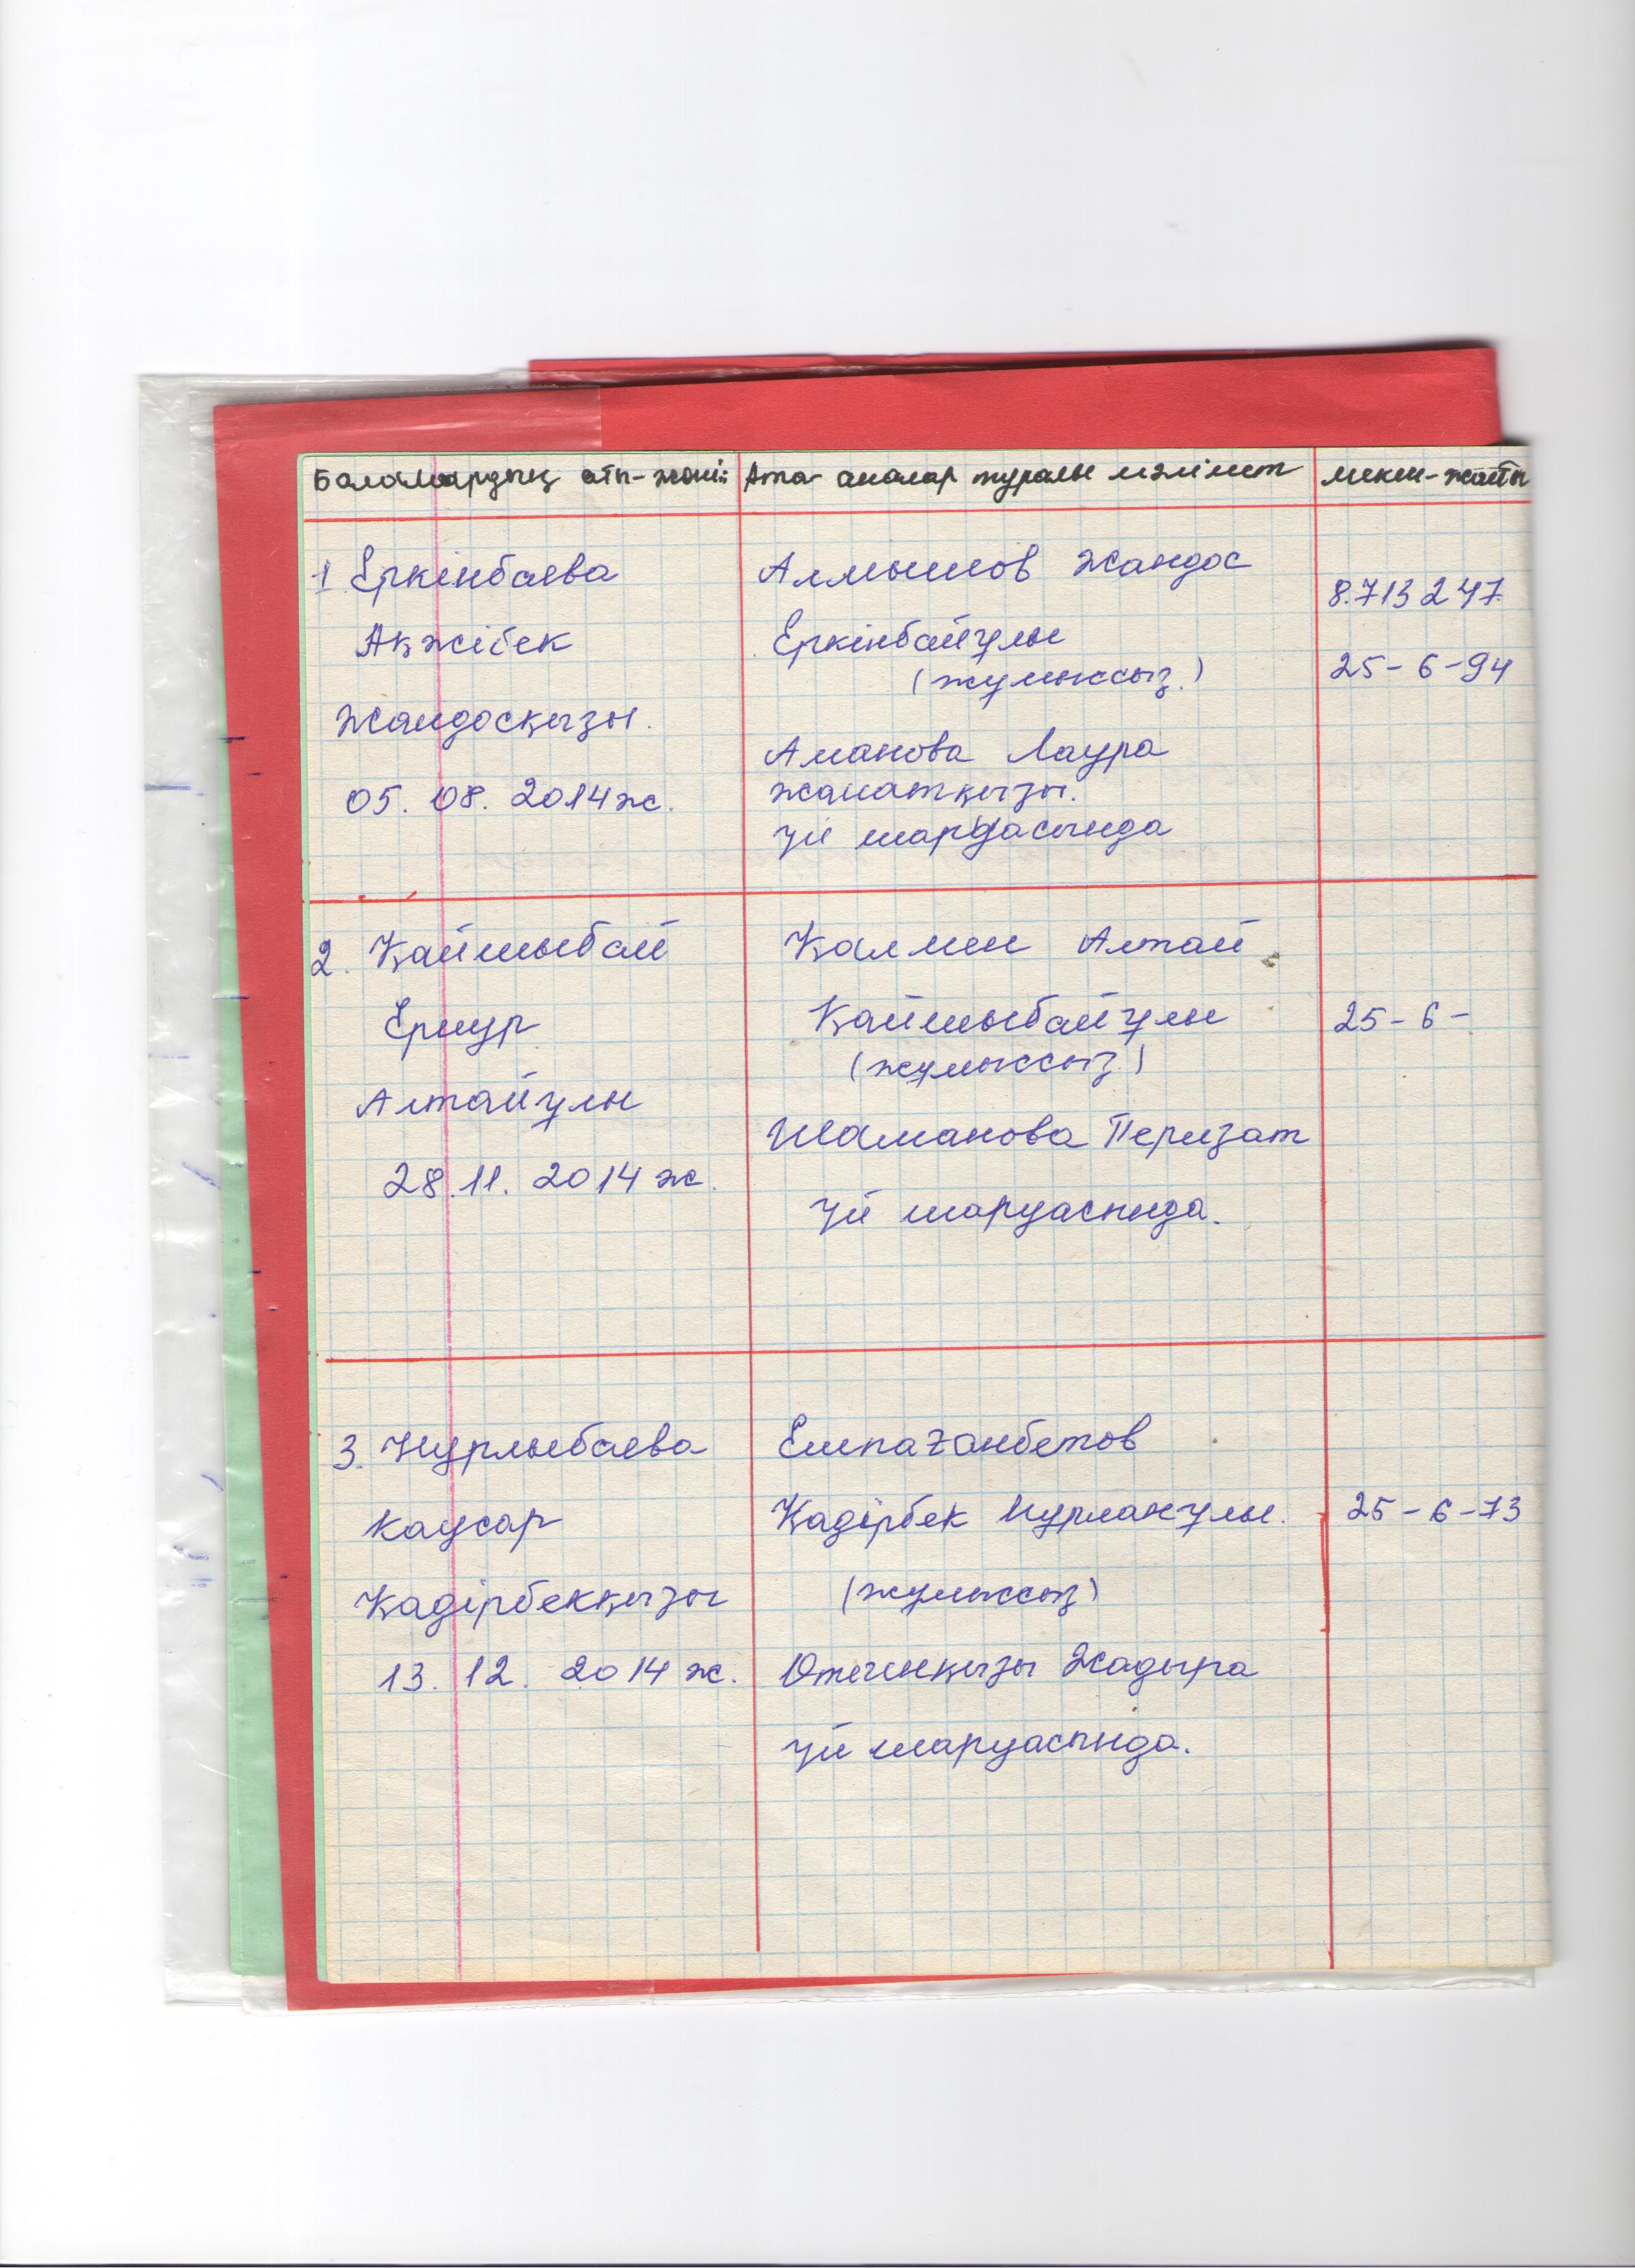 Балалардың аты-жөні: Ата-аналар туралы мәлімет мекен-жайы
1. Еркінбаева
Ақжібек
Жандосқызы.
05. 08. 2014ж.
Алмышов Жандос
Еркінбайұлы
(жұмыссыз.)
Аманова Лаура
Жанатқызы.
үй шаруасында
8.713 247
25-6-94
2. Қайшыбай
Ернұр
Алтайұлы
28.11. 2014ж.
Қалмен Алтай
Қайшыбайұлы
(жұмыссыз)
Шаманова Перизат
үй шаруасында.
25-6-
3. Нұрлыбаева
Каусар
Қадірбекқызы
13. 12. 2014ж.
Ешпағанбетов
Қадірбек Нұрланұлы.
(жұмыссыз)
Өтегенқызы Жадыра
үй шаруасында.
25-6-73